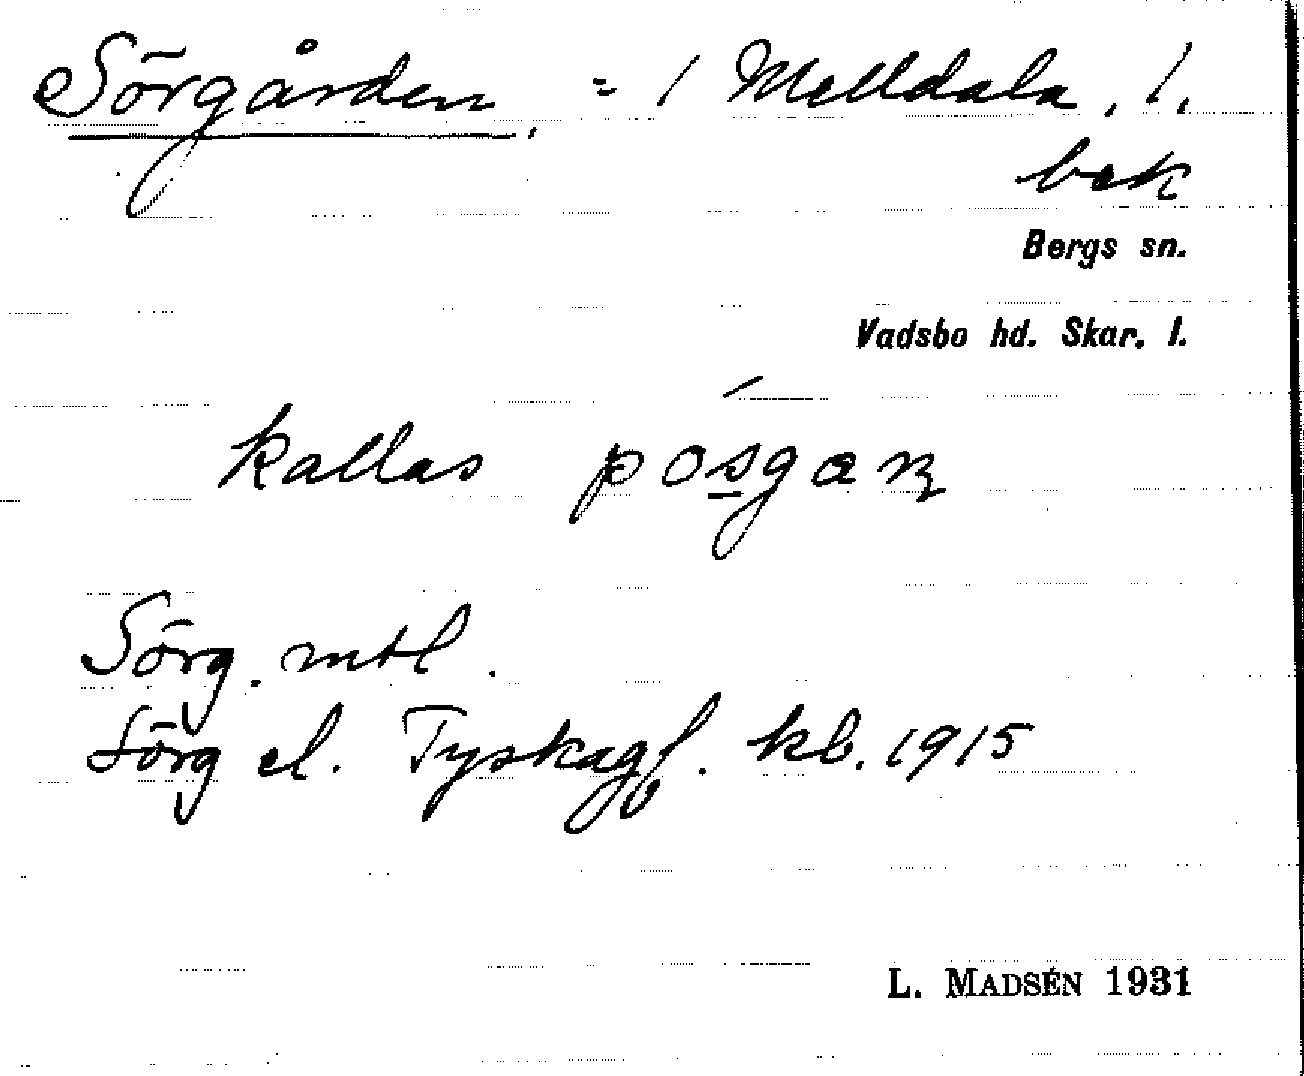 Sörgården, = 1 Melldala, 1.
bek
Bergs sn.
Vadsbo hd. Skar. l.
kallas pósgaɳ
Sörg. mtl.
Sörg el. Tyskag. kb. 1915
L. MADSÉN 1931